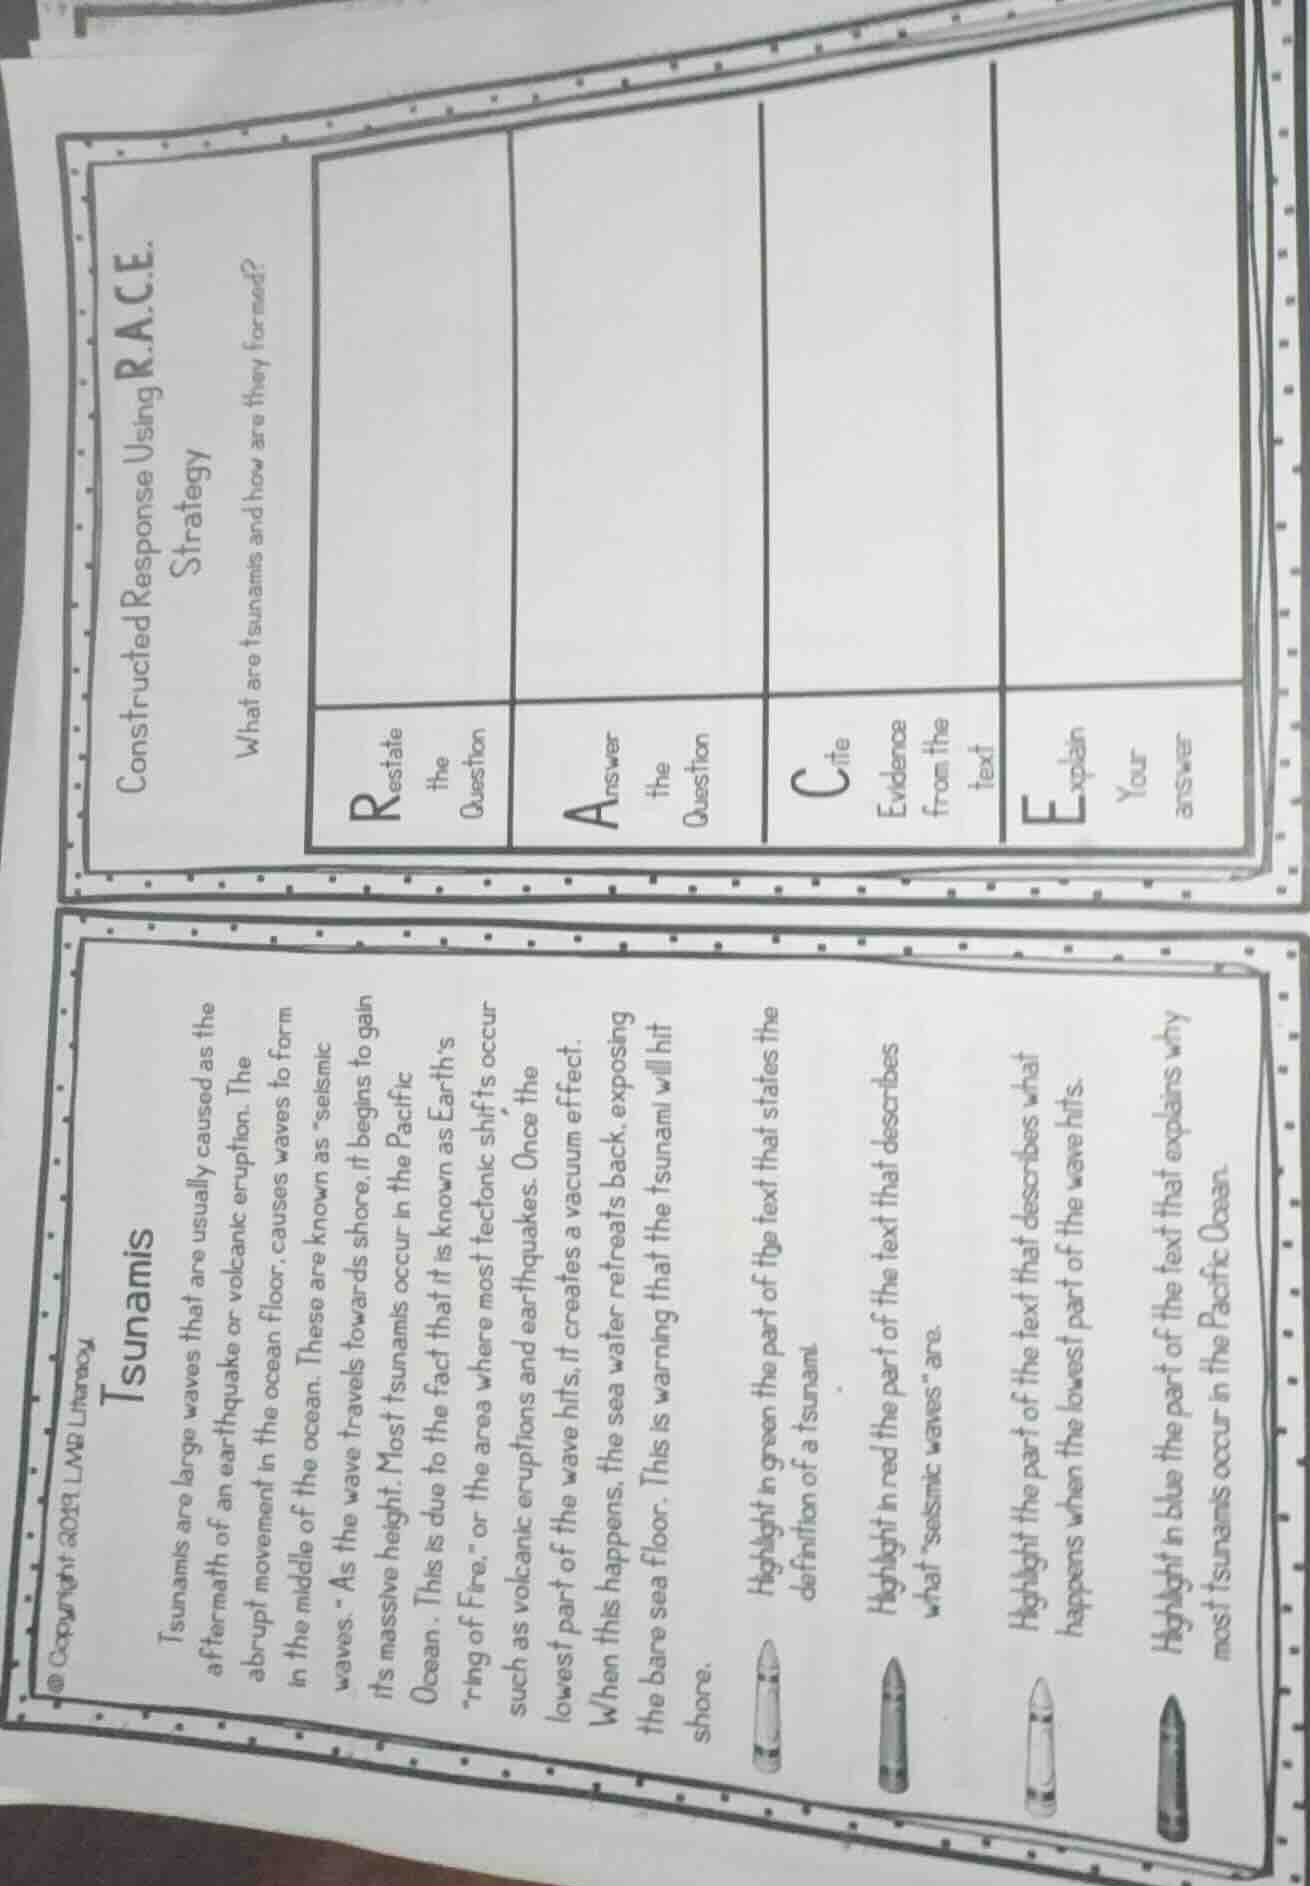 @ Copyright 2019 LMB Literacy
Tsunamis
Tsunamis are large waves that are usually caused as the
aftermath of an earthquake or volcanic eruption. The
abrupt movement in the ocean floor, causes waves to form
in the middle of the ocean. These are known as "seismic
waves." As the wave travels towards shore, it begins to gain
its massive height. Most tsunamis occur in the Pacific
Ocean. This is due to the fact that it is known as Earth's
"ring of Fire," or the area where most tectonic shifts occur
such as volcanic eruptions and earthquakes. Once the
lowest part of the wave hits, it creates a vacuum effect.
When this happens, the sea water retreats back, exposing
the bare sea floor. This is warning that the tsunami will hit
shore.
Highlight in green the part of the text that states the
definition of a tsunami.
Highlight in red the part of the text that describes
what "seismic waves" are.
Highlight the part of the text that describes what
happens when the lowest part of the wave hits.
Highlight in blue the part of the text that explains why
most tsunamis occur in the Pacific Ocean.
Constructed Response Using R.A.C.E.
Strategy
What are tsunamis and how are they formed?
Restate
the
Question
Answer
the
Question
Cite
Evidence
from the
text
Explain
Your
answer